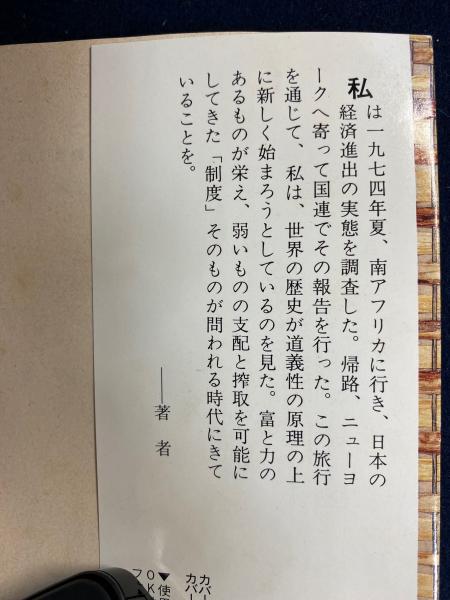 私は一九七四年夏、南アフリカに行き、日本の
経済進出の実態を調査した。帰路、ニューヨ
ークへ寄って国連でその報告を行った。この旅行
を通じて、私は、世界の歴史が道義性の原理の上
に新しく始まろうとしているのを見た。富と力の
あるものが栄え、弱いものの支配と搾取を可能に
してきた「制度」そのものが問われる時代にきて
いることを。
——著者
カバー
カバー
▼使用
OK
フ